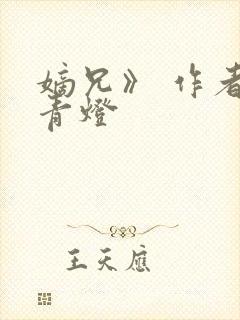 嫡兄》 作者
青燈
王天應